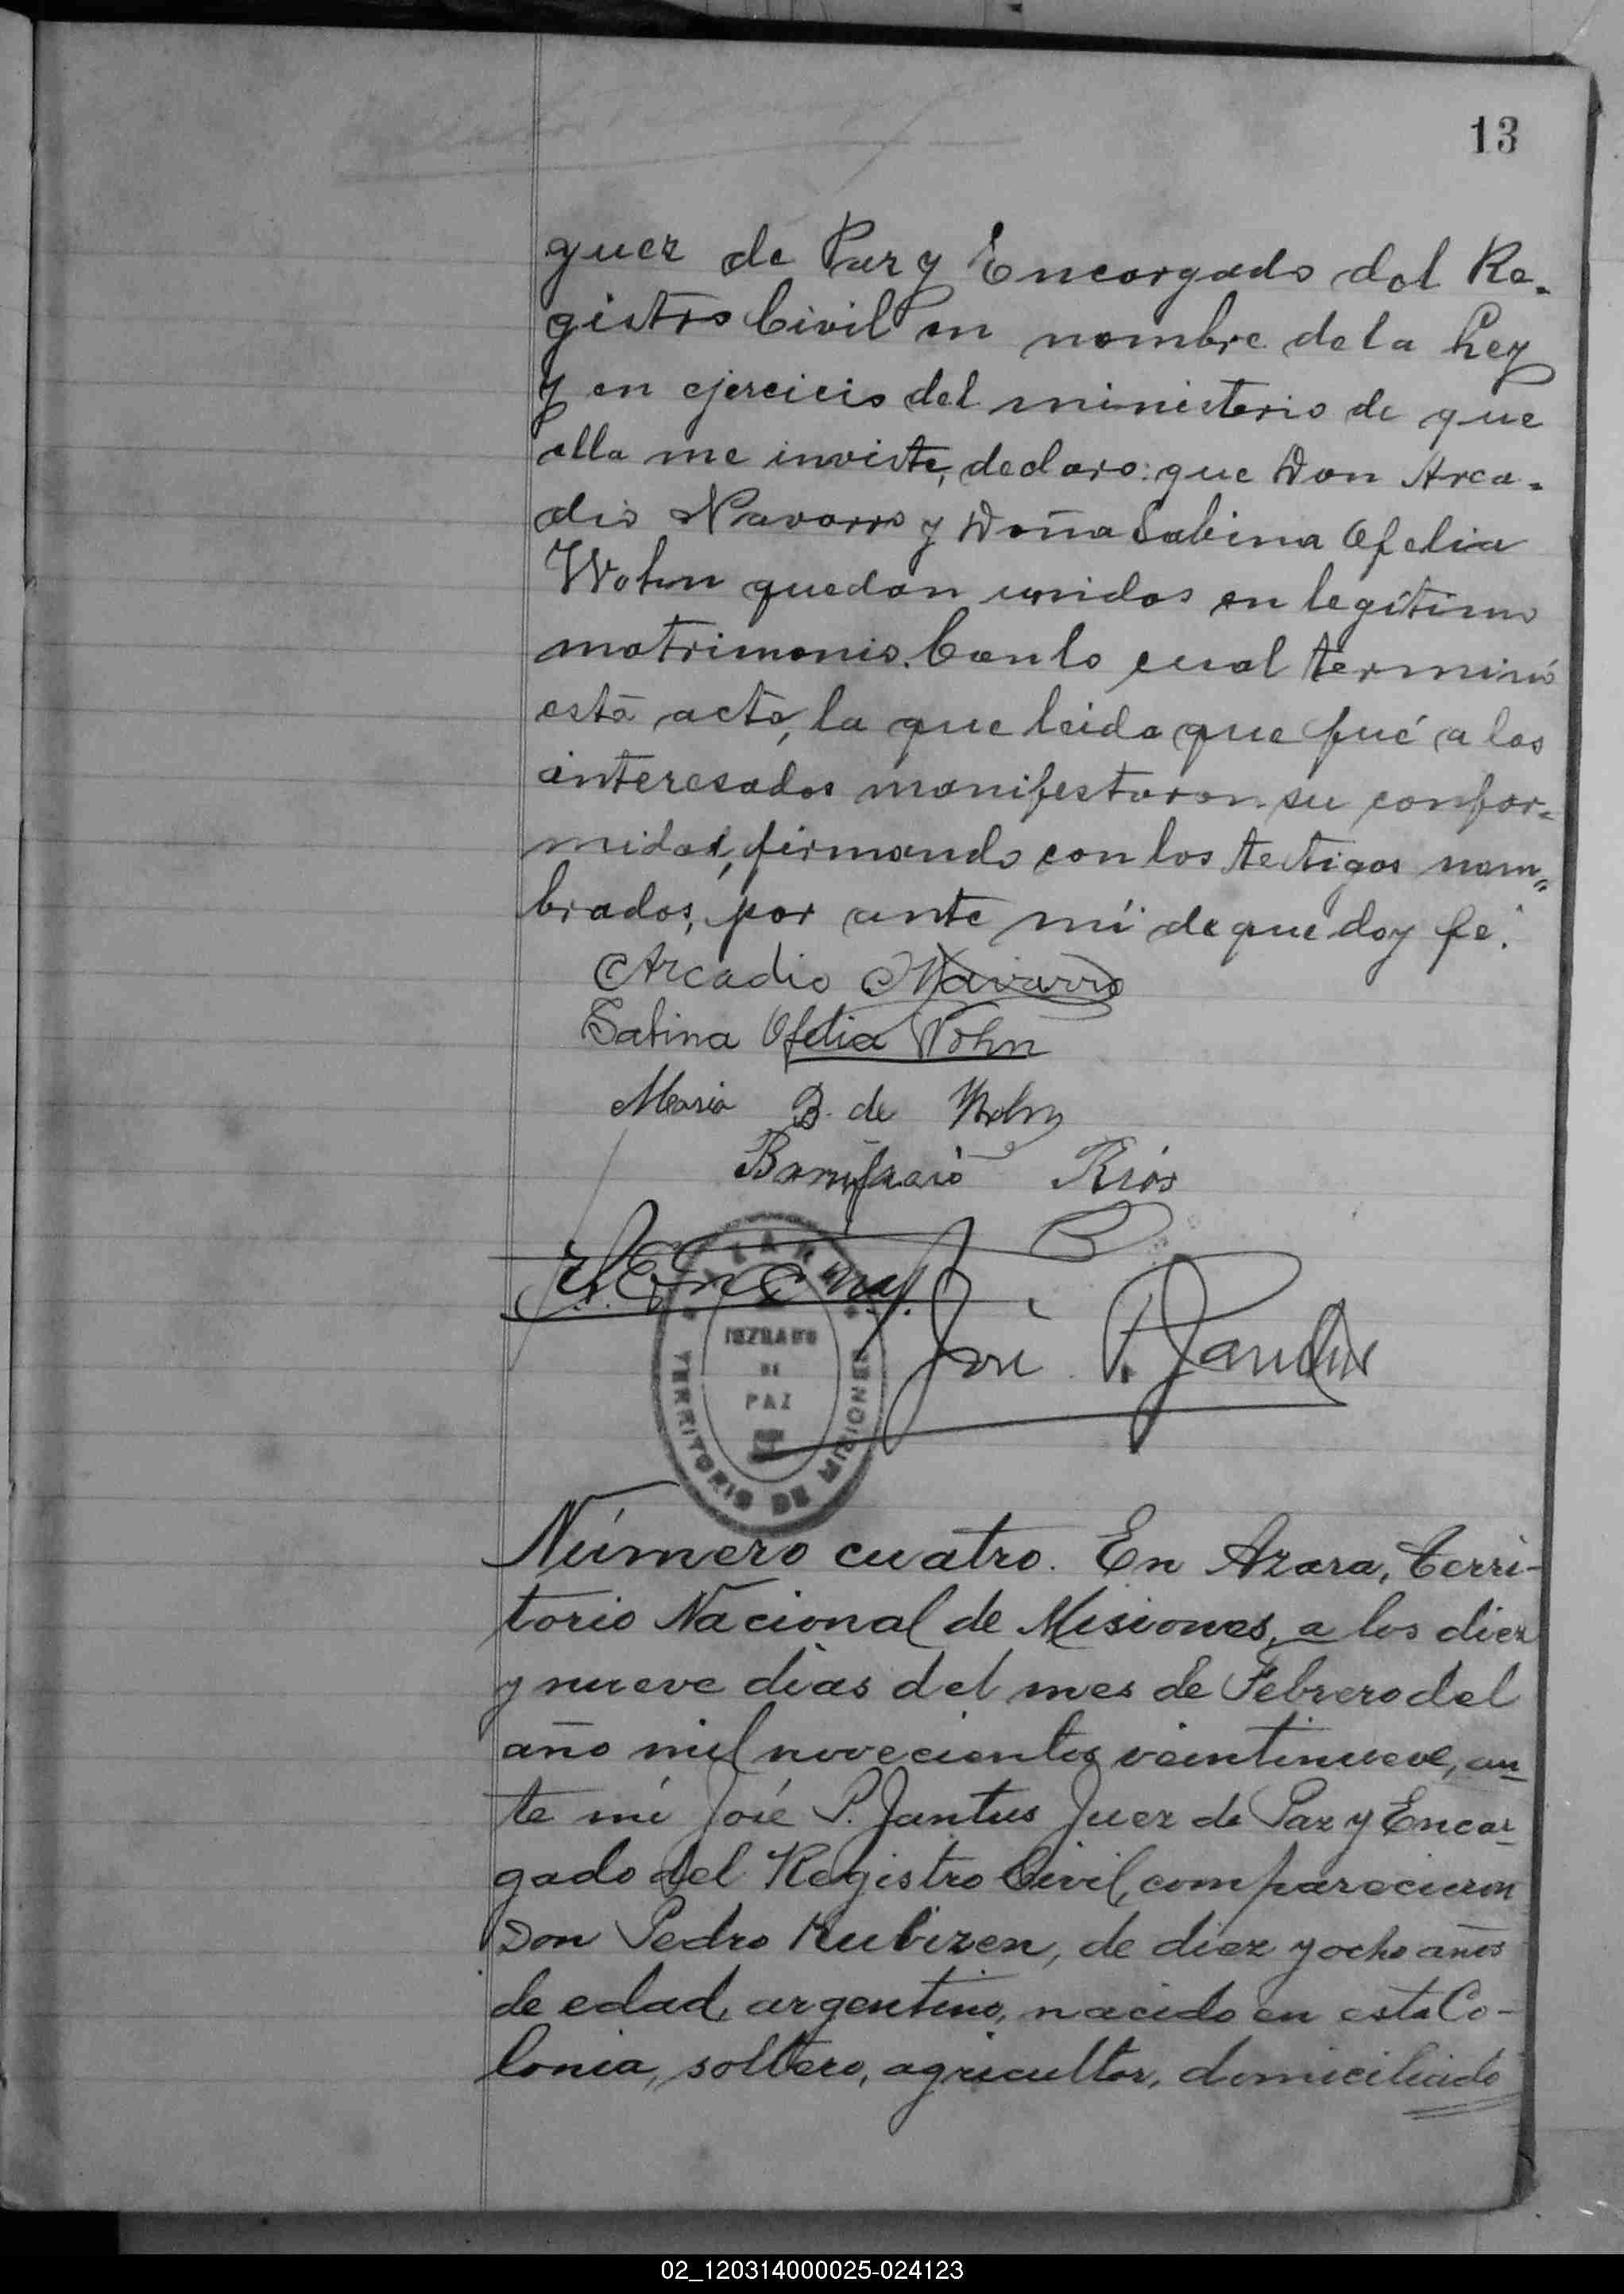 13
guez de Paz y Encargado del Re-
gistro Civil en nombre de la Ley
y en ejercicio del ministerio de que
ella me inviste, declaro: que Don Arca-
dio Navarro y Doña Sabina Ofelia
Wohn quedan unidos en legítimo
matrimonio. Con lo cual terminó
esta acta, la que leida que fué a los
interesados manifestaron su confor-
midad, firmando con los testigos nom-
brados, por ante mí de que doy fe.
Arcadio Navarro
Sabina Ofelia Wohn
Maria B. de Wohn
Bonifacio Rios
José P. Jantus
JUZGADO
DE
PAZ
TERRITORIO DE MISIONES
Número cuatro. En Azara, Terri-
torio Nacional de Misiones, a los diez
y nueve dias del mes de Febrero del
año mil novecientos veintinueve, an-
te mí José P. Jantus Juez de Paz y Encar-
gado del Registro Civil, comparecieron
Don Pedro Kubizen, de diez y ocho años
de edad, argentino, nacido en esta Co-
lonia, soltero, agricultor, domiciliado
02_120314000025-024123